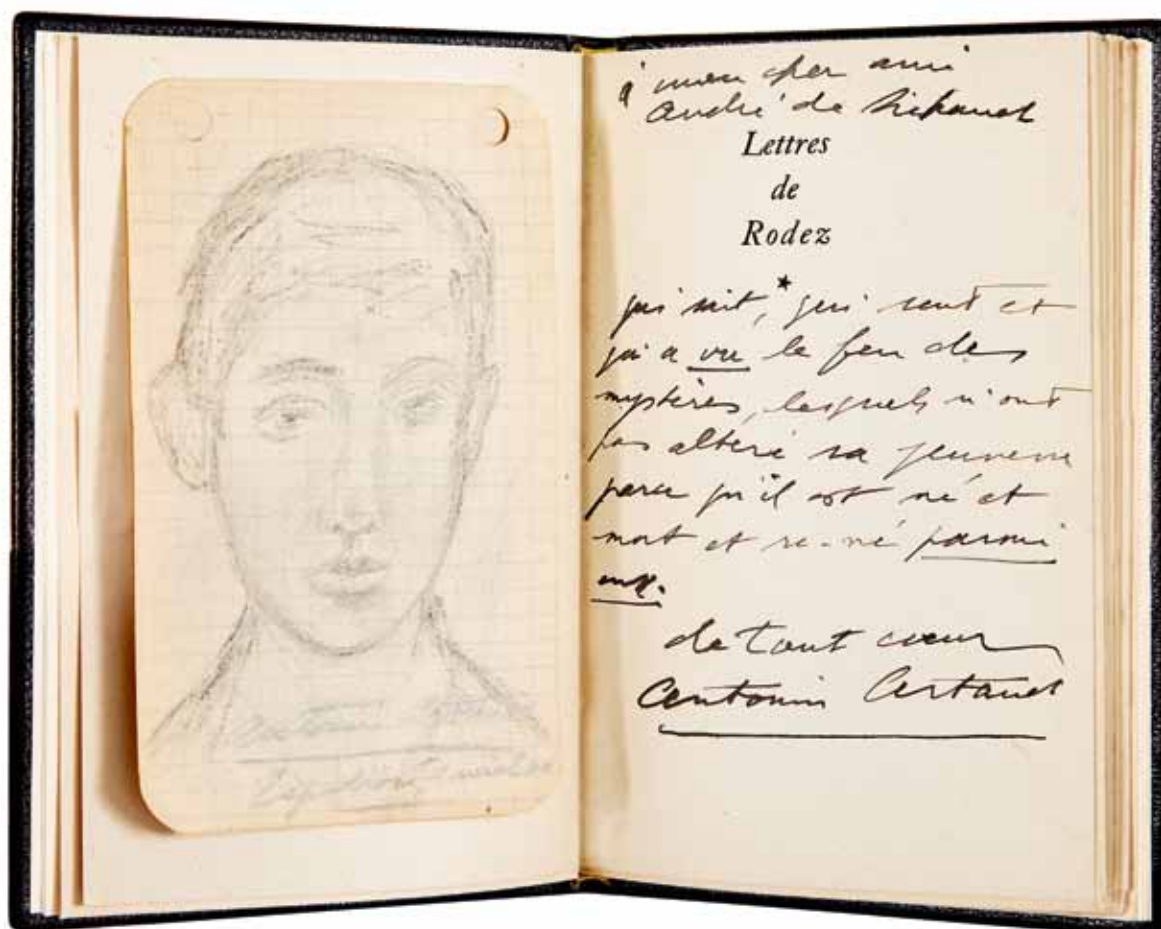 Antonin
à mon cher ami
André de Richaud
Lettres
de
Rodez
*
qui sait, qui sent et
qui a vu le feu des
mystères, lesquels n'ont
pas altéré sa jeunesse
parce qu'il est né et
mort et re-né parmi
eux.
de tout cœur
Antonin Artaud